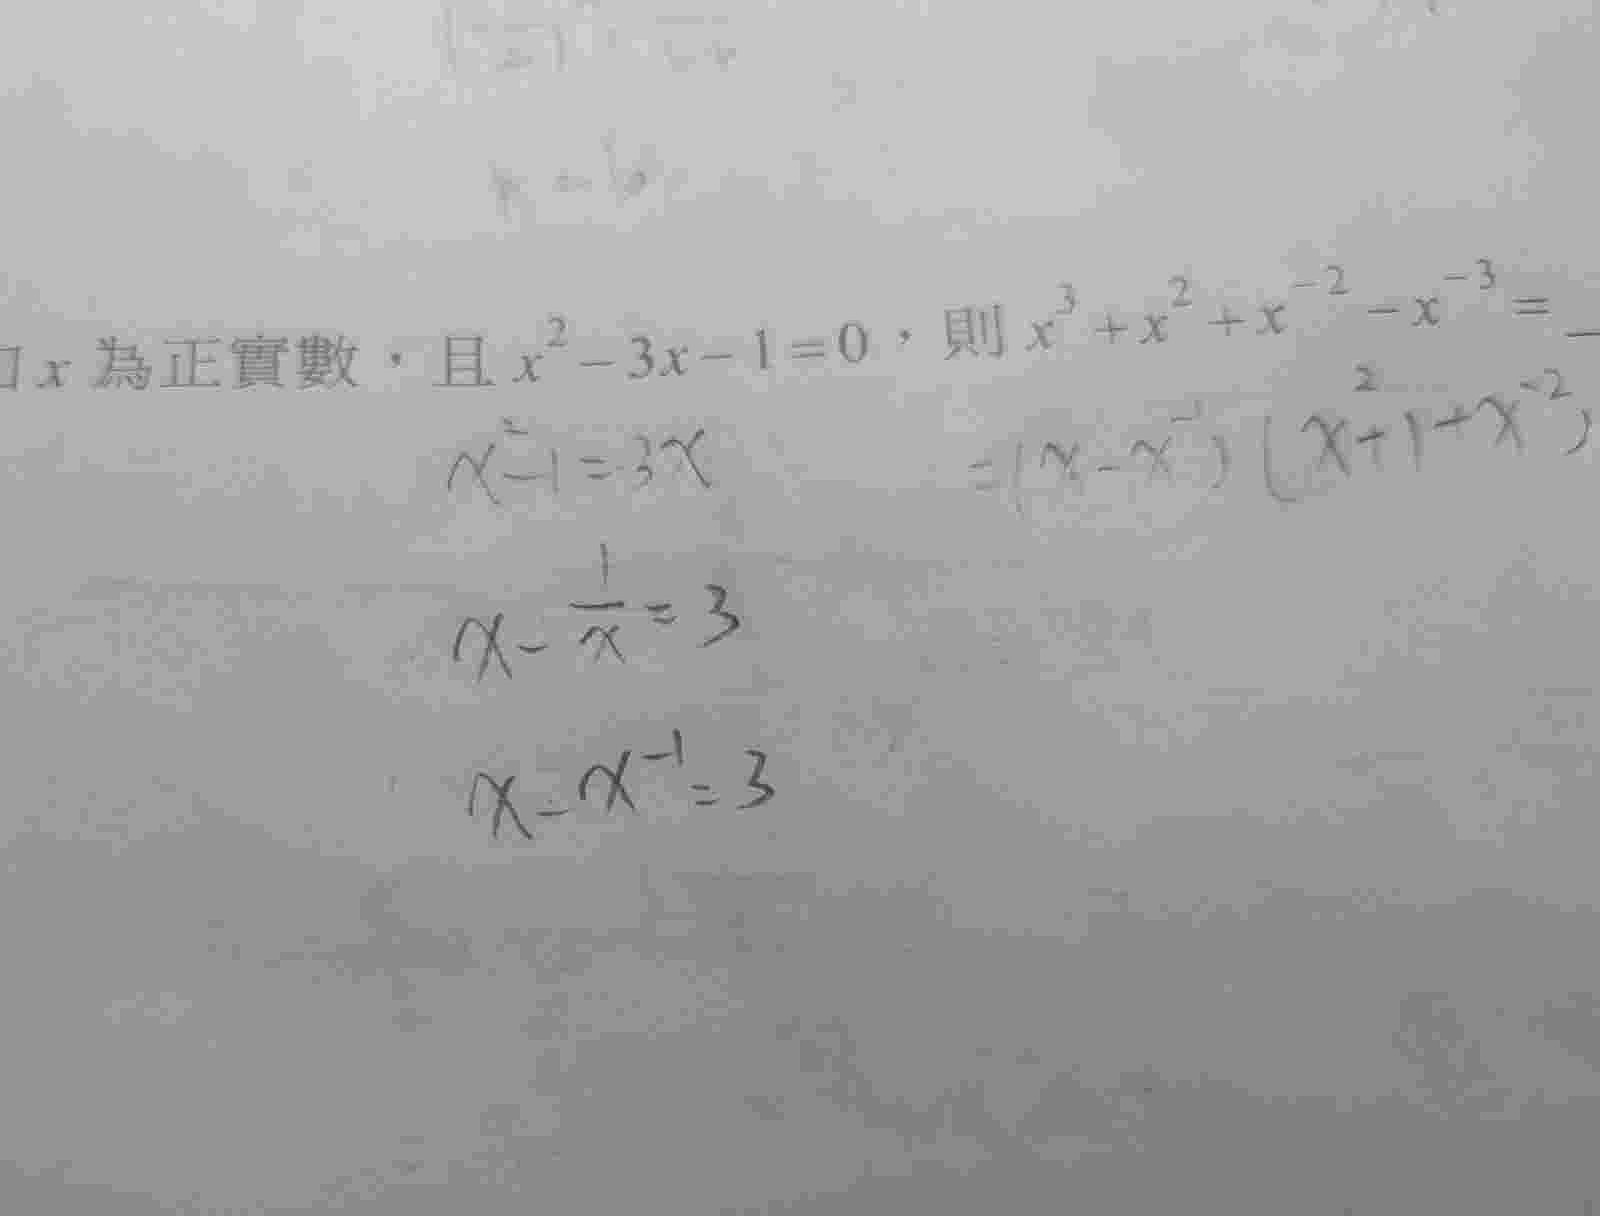 x 為正實數，且 x² − 3x − 1 = 0，則 x³ + x² + x⁻² − x⁻³ = _
x² − 1 = 3x
= (x − x⁻¹) (x² + 1 + x⁻²)
x − 1/x = 3
x − x⁻¹ = 3